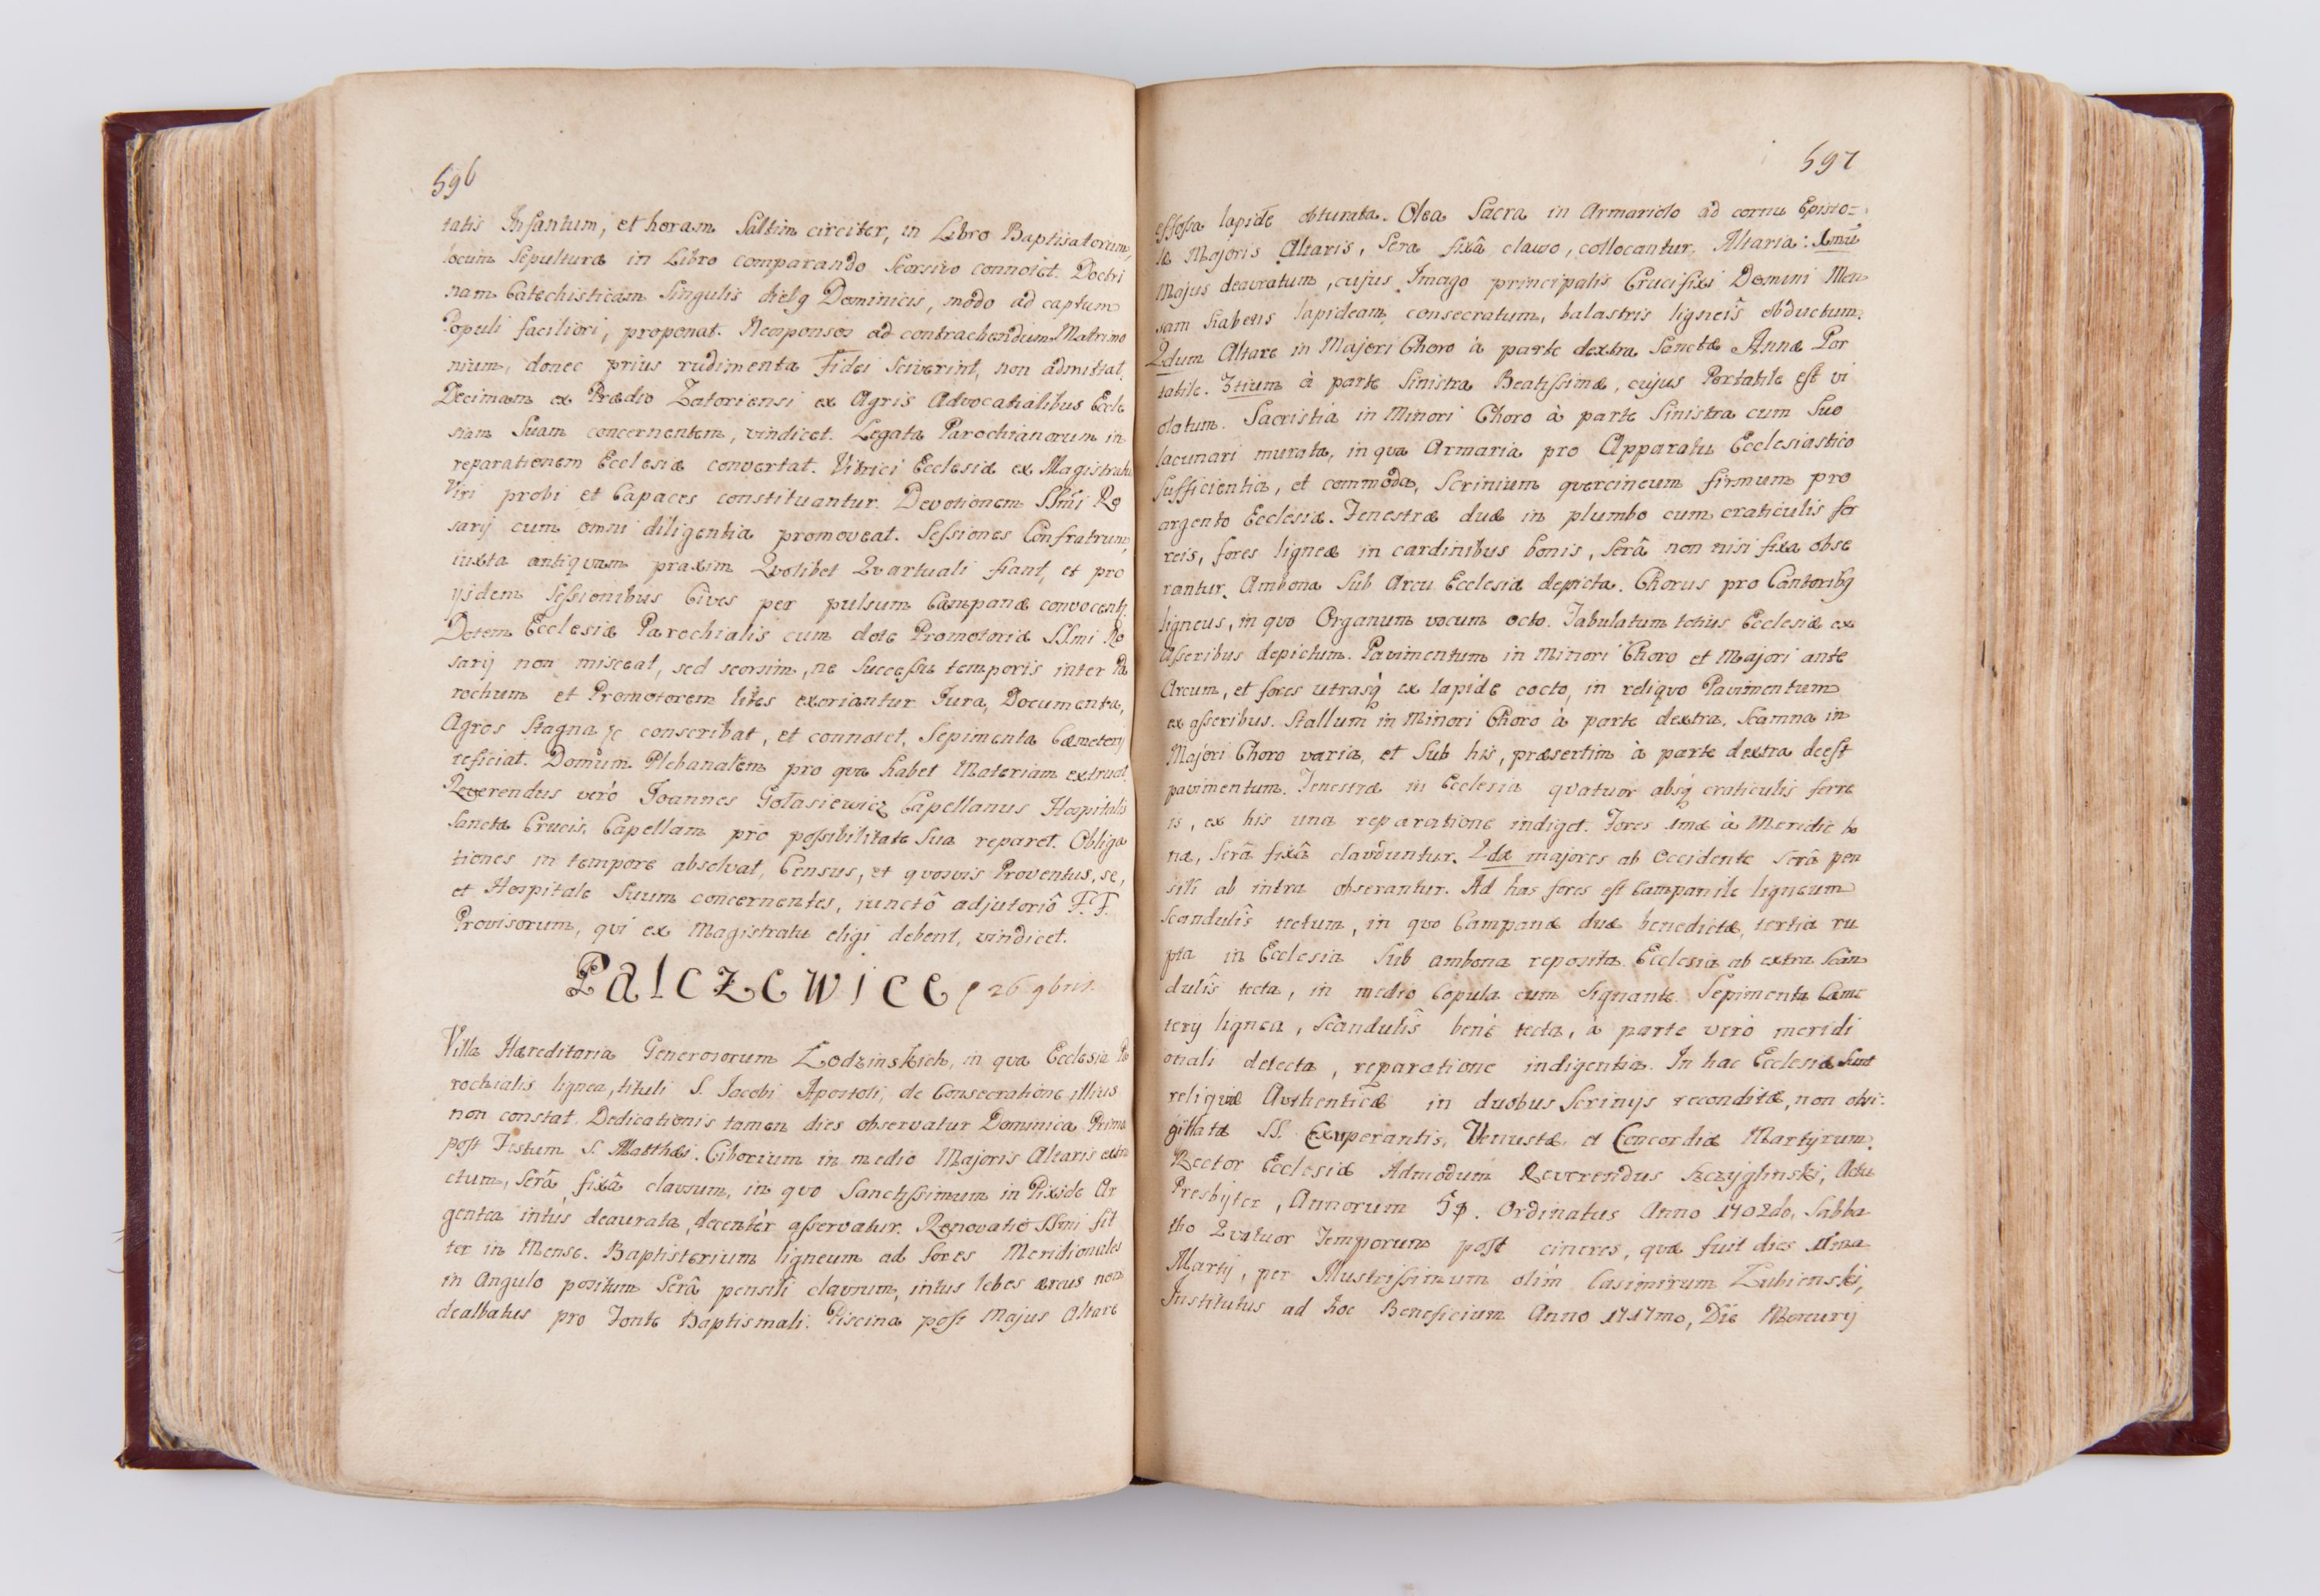 596
tatis Infantum, et horam Saltim circiter, in Libro Baptisatorum,
locum Sepulturæ in Libro comparando Seorsivo connotet. Doctri
nam Catechisticam Singulis diebq Dominicis, modo ad captum
Populi faciliori, proponat. Neosponsos ad contrachendum Matrimo
nium, donec prius rudimenta Fidei Sciverint, non admittat.
Decimam ex Prædio Zatoriensi ex Agris Advocatialibus Eccle
siam Suam concernentem, vindicet. Legata Parochianorum in
reparationem Ecclesiæ convertat. Vitrici Ecclesiæ ex Magistratu
Viri probi et Capaces constituantur. Devotionem SSmi Ro
sarij cum omni diligentia promoveat. Sessiones Confratrum,
iuxta antiquam praxim Quolibet Quartuali fiant, et pro
ijsdem Sessionibus Cives per pulsum Campanæ convocent
Dotem Ecclesiæ Parochialis cum dote Promotoriæ SSmi Ro
sarij non misceat, sed seorsim, ne Successu temporis inter Pa
rochum et Promotorem lites exoriantur. Jura, Documenta,
Agros Stagna &c conscribat, et connotet, Sepimenta Cæmeterij
reficiat. Domum Plebanalem pro qua habet Materiam extruat.
Reverendus verò Joannes Gołasiewicz Capellanus Hospitalis
Sanctæ Crucis, Capellam pro possibilitate Sua reparet. Obliga
tiones in tempore absolvat, Census, et quosvis Proventus, se,
et Hospitale Suum concernentes, iunctô adjutoriô F.F.
Provisorum, qui ex Magistratu eligi debent, vindicet.
Palczewice 26 9bris.
Villa Hæreditaria Generosorum Łodzinskich, in qua Ecclesia Pa
rochialis lignea, tituli S. Jacobi Apostoli, de Consecratione illius
non constat. Dedicationis tamen dies observatur Dominica Prima
post Festum S. Matthæi. Ciborium in medio Majoris Altaris extru
ctum, Serâ fixâ clausum, in quo Sanctissimum in Pixide Ar
gentea intus deaurata, decentèr asservatur. Renovatio SSmi fit
ter in Mense. Baptisterium ligneum ad fores Meridionales
in Angulo positum Serâ pensili clausum, intus lebes æreus non
dealbatus pro Fonte Baptismali. Piscina post Majus Altare
597
effossa lapide obturata. Olea Sacra in Armariolo ad cornu Episto=
læ Majoris Altaris, Sera fixâ clauso, collocantur. Altaria: 1mũ
Majus deauratum, cujus Imago principalis Crucifixi Domini Men
sam habens lapideam consecratum, balastris ligneis obductum.
2dum Altare in Majori Choro à parte dextra Sanctæ Annæ Por
tatile. 3tium à parte Sinistra Beatissimæ, cujus Portatile est vi
olatum. Sacristia in Minori Choro à parte Sinistra cum Suo
lacunari murata, in qua Armaria pro Apparatu Ecclesiastico
Sufficientia, et commoda, Scrinium quercineum firmum pro
argento Ecclesiæ. Fenestræ duæ in plumbo cum craticulis fer
reis, fores ligneæ in cardinibus bonis, Serâ non nisi fixa obse
rantur. Ambona Sub Arcu Ecclesiæ depicta. Chorus pro Cantoribq
ligneus, in quo Organum vocum octo. Tabulatum totius Ecclesiæ ex
Asseribus depictum. Pavimentum in Minori Choro et Majori ante
Arcum, et fores utrasq ex lapide cocto, in reliquo Pavimentum
ex asseribus. Stallum in Minori Choro à parte dextra, Scamna in
Majori Choro varia, et Sub his, præsertim à parte dextra deest
pavimentum. Fenestræ in Ecclesia quatuor absq craticulis ferre
is, ex his una reparatione indiget. Fores 1mæ à Meridie bo
næ, Serâ fixâ clauduntur. 2dæ majores ab Occidente Serâ pen
sili ab intra obserantur. Ad has fores est Campanile ligneum
Scandulis tectum, in quo Campanæ duæ benedictæ, tertia ru
pta in Ecclesia Sub ambona reposita. Ecclesia ab extra Scan
dulis tecta, in medio Copula cum Signante. Sepimenta Cæme
terij lignea, Scandulis benè tecta, à parte verò meridi
onali detecta, reparatione indigentia. In hac Ecclesia Sunt
reliquiæ Authenticæ in duobus Scrinijs reconditæ, non obsi:
gillatæ SS. Exuperantis, Venustæ, et Concordiæ Martyrum.
Rector Ecclesiæ Admodum Reverendus Szczyglinski, Actu
Presbyter, Annorum Ordinatus Anno 1702do, Sabba
tho Quatuor Temporum post cineres, quæ fuit dies 11ma
Martij, per Illustrissimum olim Casimirum Łubienski,
Institutus ad hoc Beneficium Anno 1717mo, Die Mercurij